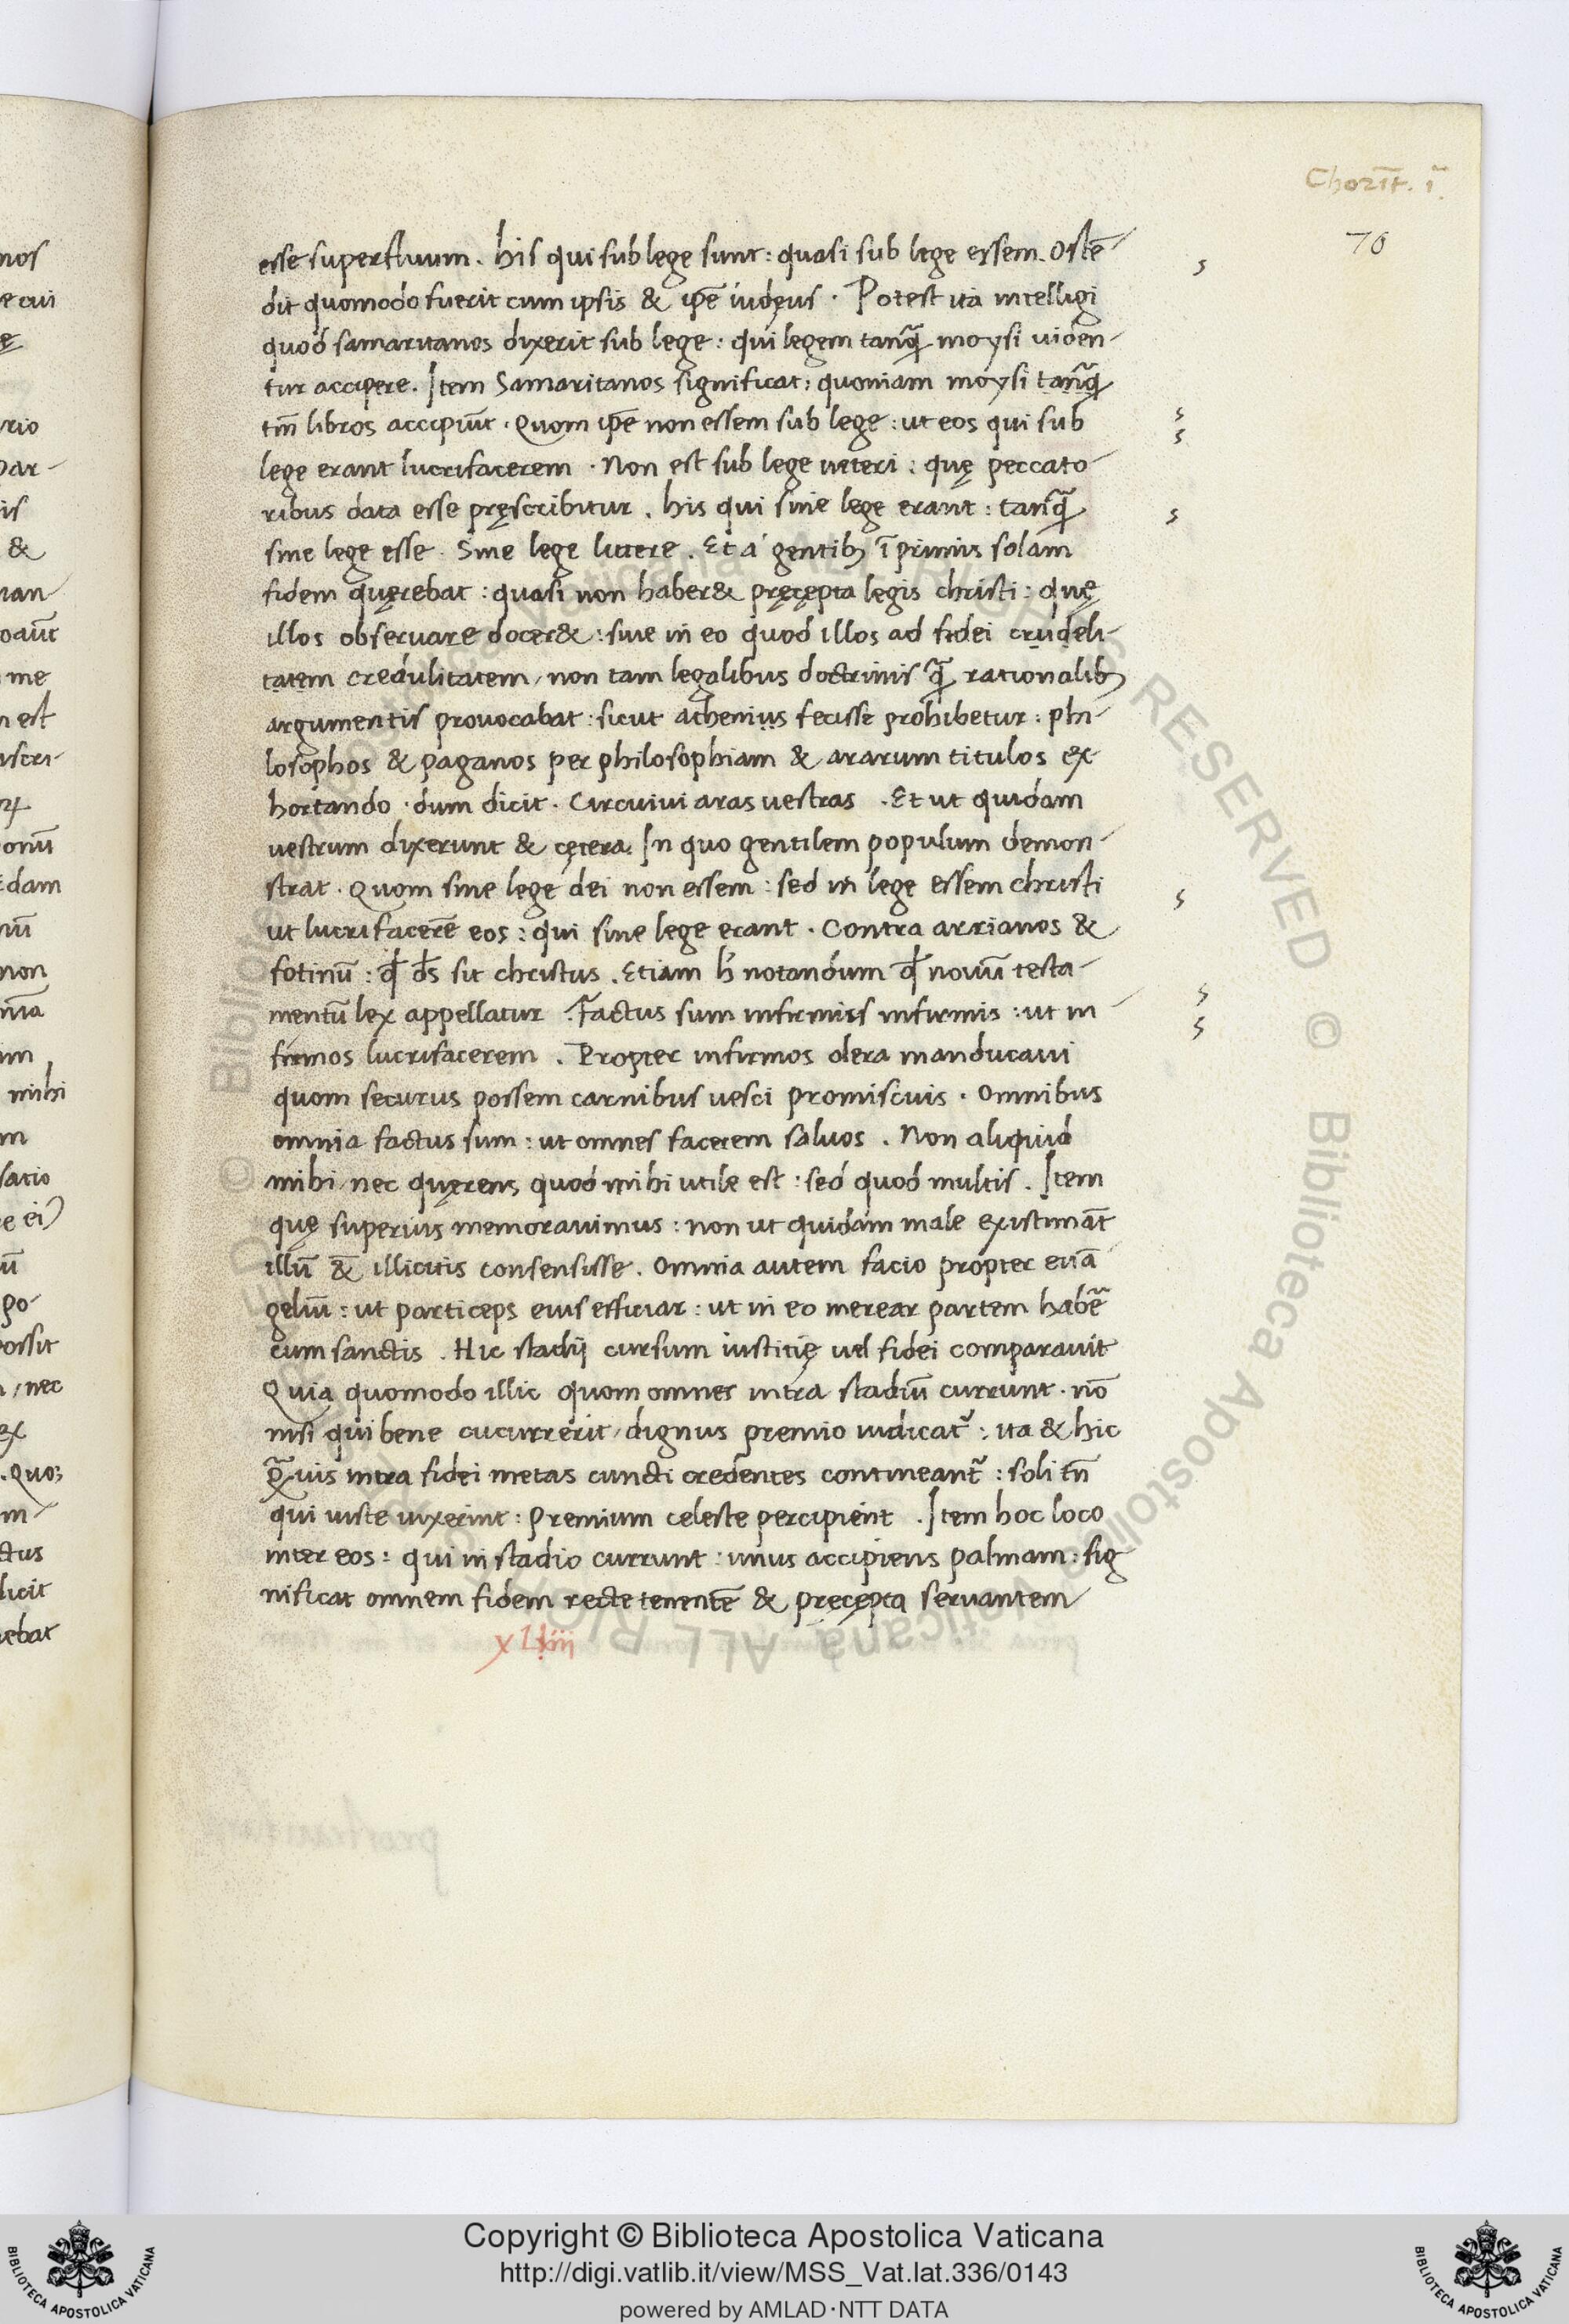 Chorīt. ī.
70
esse superfluum. his qui sub lege sunt: quasi sub lege essem. Ostē-
dit quomodo fuerit cum ipsis & ip̄e iudęus. Potest ita intelligi
quod samaritanos dixerit sub lege: qui legem tanq̃ moysi viden-
tur accipere. Item Samaritanos significat: quoniam moysi tanq̃
tm̄ libros accipiūt. Quom ip̄e non essem sub lege: ut eos qui sub
lege erant lucrifacerem. Non est sub lege veteri: quę peccato-
ribus data esse pręscribitur. his qui sine lege erant: tanq̃
sine lege esse. Sine lege vivere. Et a gentib; ī primis solam
fidem quęrebat: quasi non haber& pręcepta legis christi: quę
illos observare docer&: sive in eo quod illos ad fidei crudeli-
tatem credulitatem, non tam legalibus doctrinis q̃ rationalib;
argumentis provocabat: sicut athenius fecisse prohibetur: phi-
losophos & paganos per philosophiam & ararum titulos ex-
hortando. dum dicit. Circuivi aras vestras. Et ut quidam
vestrum dixerunt & cętera. In quo gentilem populum demon-
strat. Quom sine lege dei non essem: sed in lege essem christi
ut lucrifacerē eos: qui sine lege erant. Contra arrianos &
fotinū: qđ ds̄ sit christus. Etiam h̓ notandum qđ novū testa-
mentū lex appellatur. Factus sum infirmis infirmis: ut in-
firmos lucrifacerem. Propter infirmos olera manducavi
quom securus possem carnibus vesci promiscuis. Omnibus
omnia factus sum: ut omnes facerem salvos. Non aliquid
mihi, nec quęrens quod mihi utile est: sed quod multis. Item
quę superius memoravimus: non ut quidam male existimāt
illū & illicitis consensisse. Omnia autem facio propter evā-
geliū: ut particeps eius efficiar: ut in eo merear partem habē
cum sanctis. Hic stadij cursum iusticię vel fidei comparavit
Quia quomodo illic quom omnes intra stadiū currunt. nō
nisi qui bene cucurrerit, dignus premio iudicat̃: ita & hic
q̃vis intra fidei metas cuncti credentes contineant̃: soli tn̄
qui iuste vixerint: premium celeste percipient. Item hoc loco
inter eos: qui in stadio currunt: unus accipiens palmam: sig
nificat omnem fidem recte tenentē & pręcępta servantem
Copyright © Biblioteca Apostolica Vaticana
http://digi.vatlib.it/view/MSS_Vat.lat.336/0143
powered by AMLAD·NTT DATA